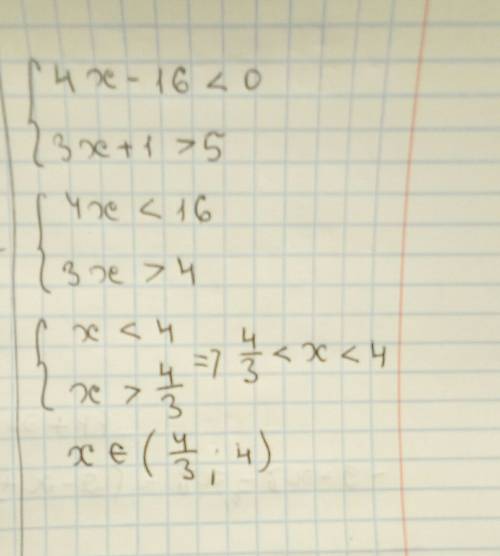 { 4x - 16 < 0
3x + 1 > 5
{ 4x < 16
3x > 4
{ x < 4
x > 4/3 => 4/3 < x < 4
x ∈ (4/3; 4)